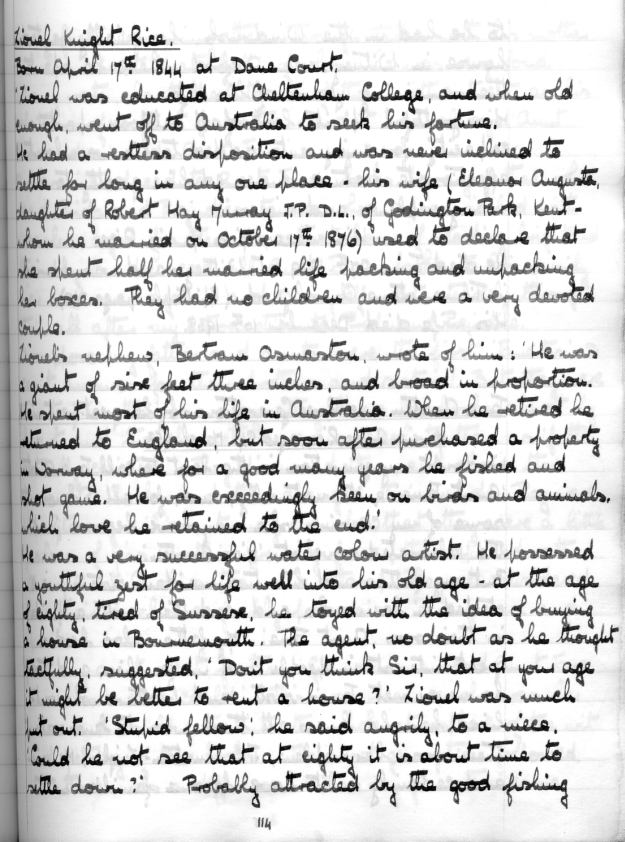 Lionel Knight Rice.
Born April 17th 1844 at Dane Court.
'Lionel was educated at Cheltenham College, and when old
enough, went off to Australia to seek his fortune.
He had a restless disposition and was never inclined to
settle for long in any one place - his wife (Eleanor Augusta,
daughter of Robert Hay Murray J.P. D.L., of Godington Park, Kent -
whom he married on October 17th 1876) used to declare that
she spent half her married life packing and unpacking
her boxes. They had no children and were a very devoted
couple.
Lionel's nephew, Bertram Osmaston, wrote of him: 'He was
a giant of six feet three inches, and broad in proportion.
He spent most of his life in Australia. When he retired he
returned to England, but soon after purchased a property
in Norway, where for a good many years he fished and
shot game. He was exceedingly keen on birds and animals,
which love he retained to the end.'
He was a very successful water colour artist. He possessed
a youthful zest for life well into his old age - at the age
of eighty, tired of Sussex, he toyed with the idea of buying
a house in Bournemouth. The agent, no doubt as he thought
tactfully, suggested, 'Don't you think Sir, that at your age
it might be better to rent a house?' Lionel was much
put out. 'Stupid fellow', he said angrily, to a niece,
'Could he not see that at eighty it is about time to
settle down?' Probably attracted by the good fishing
114